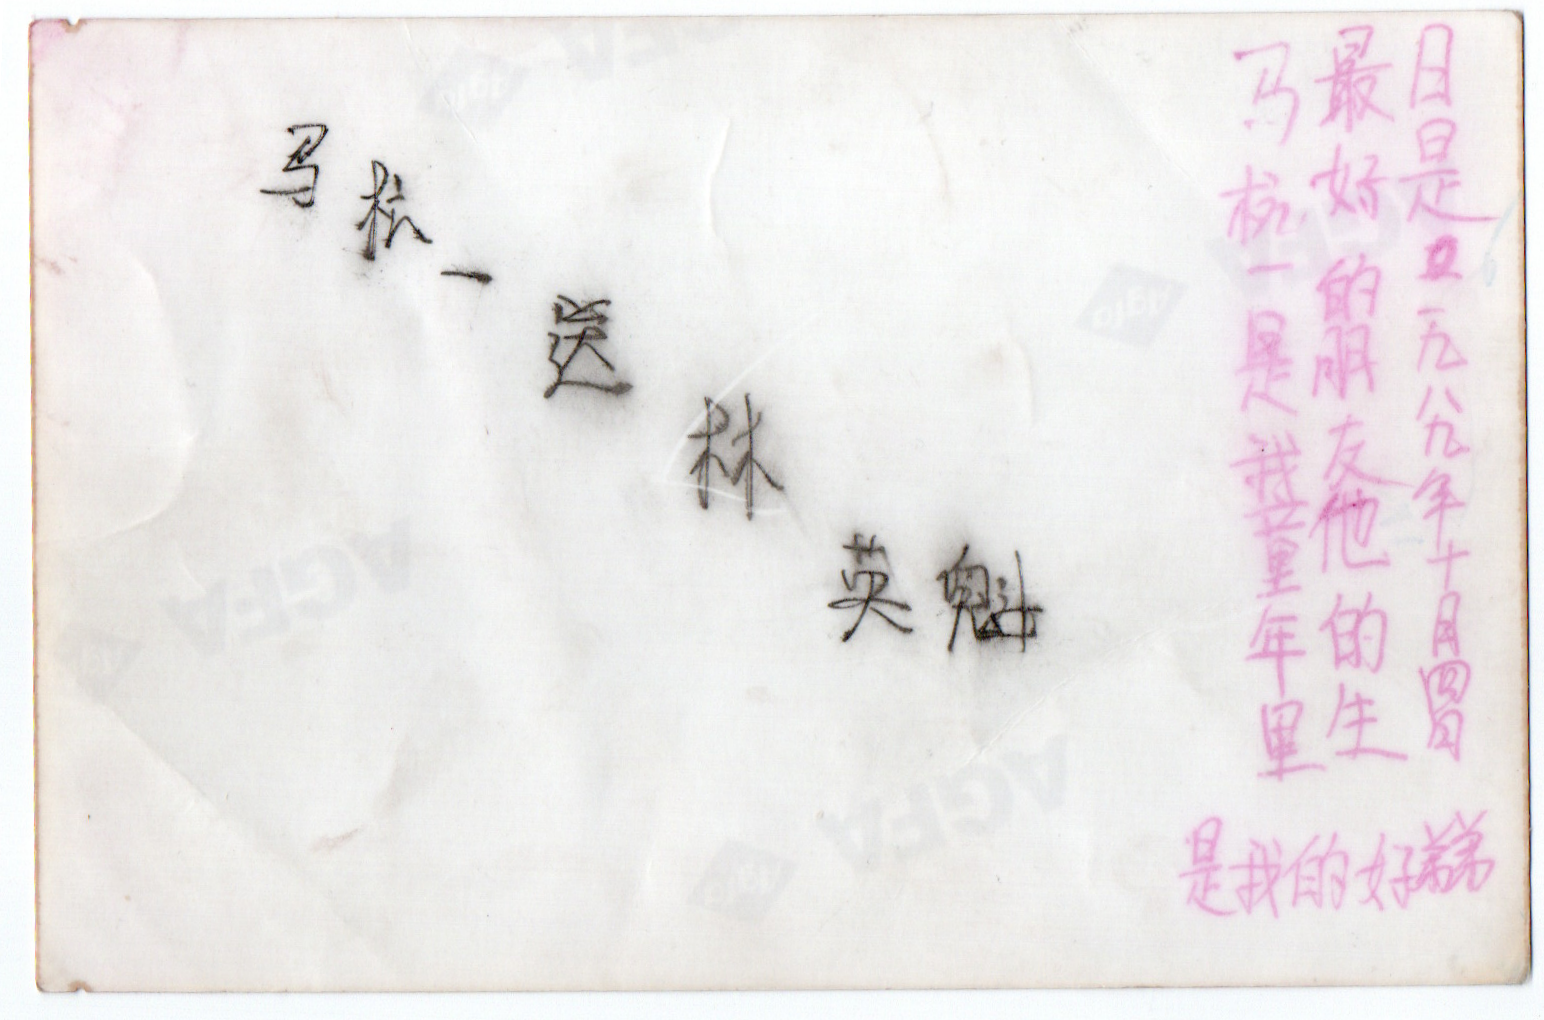 马杭一送林英魁
马杭一是我童年里
最好的朋友他的生
日是一九八九年十月四日
是我的好弟弟
AGFA
AGFA
AGFA